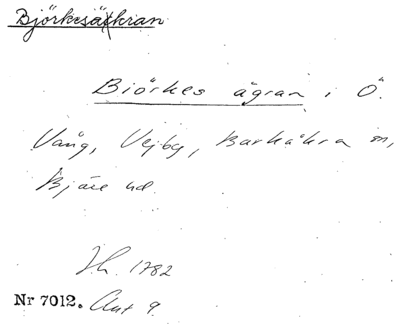 Björkesäkran
Biörkes ägran i Ö.
Vång, Vejby, Barkåkra sn,
Bjäre hd.
Jh. 1782
Nr 7012. Akt 9.